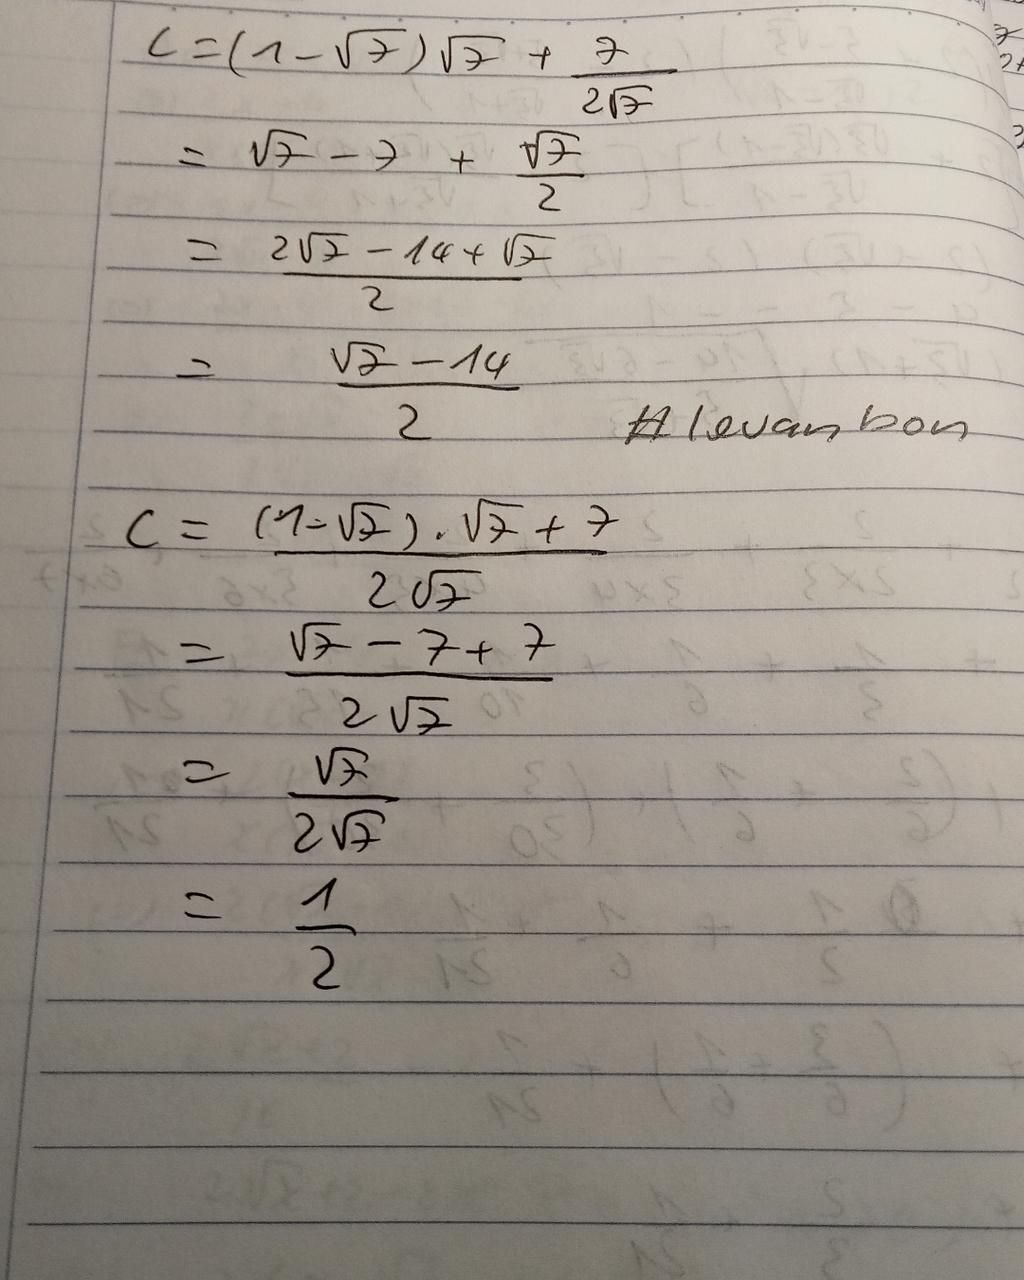 C = (1 - √7)√7 + 7/(2√7)
= √7 - 7 + √7/2
= (2√7 - 14 + √7)/2
= (√7 - 14)/2
#levanbon
C = ((1 - √7) . √7 + 7)/(2√7)
= (√7 - 7 + 7)/(2√7)
= √7/(2√7)
= 1/2